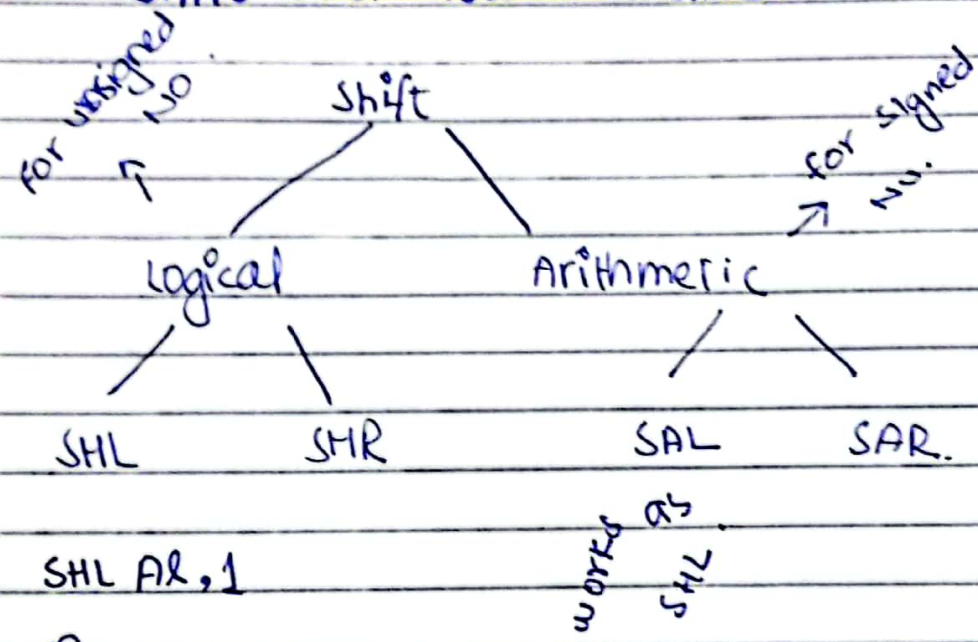 for unsigned
NO.
Shift
for signed
NO.
Logical
Arithmeric
SHL
SHR
SAL
SAR.
works as SHL
SHL Al, 1